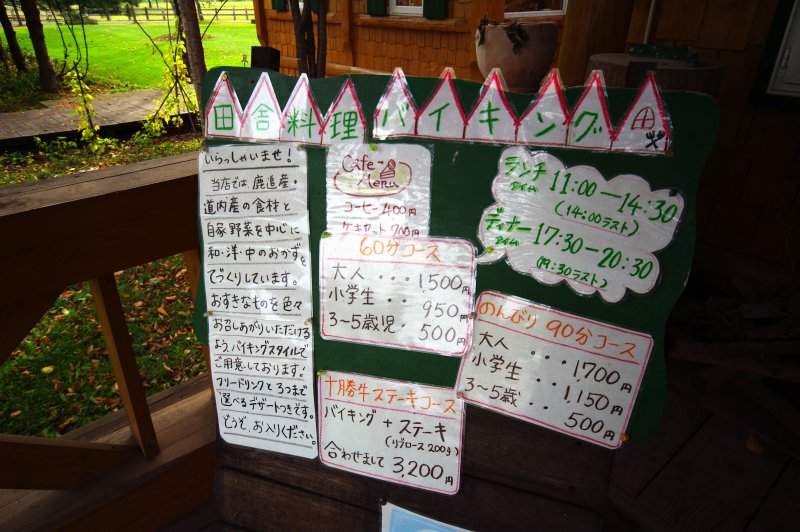 田舎料理バイキング
いらっしゃいませ！
当店では、鹿追産。
道内産の食材と
自家野菜を中心に
和・洋・中のおかずを
てづくりしています。
おすきなものを色々
お召しあがりいただける
よう、バイキングスタイルで
ご用意しております！
フリードリンクと3つまで
選べるデザートつきです。
どうぞ、お入りください。
Cafe-
Menu
コーヒー 400円
ケーキセット 700円
ランチ
タイム 11:00-14:30
(14:00ラスト)
ディナー
タイム 17:30-20:30
60分コース
大人 ... 1,500円
小学生 .. 950円
3~5歳児. 500円
のんびり 90分コース
大人 .... 1,700円
小学生 .... 1,150円
3~5歳 .... 500円
十勝牛ステーキコース
バイキング + ステーキ
(リブロース 200g)
合わせまして 3,200円